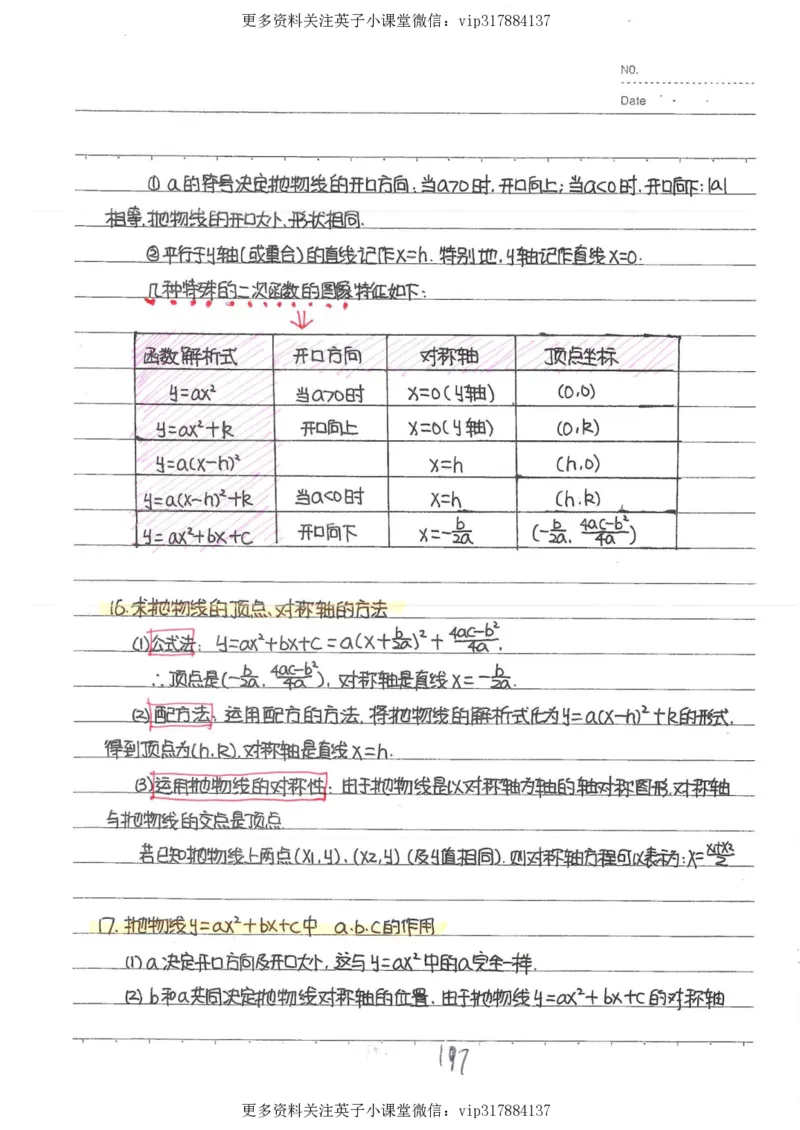 更多资料关注英子小课堂微信：vip317884137
NO.
Date
① a的符号决定抛物线的开口方向：当a>0时，开口向上；当a<0时，开口向下；|a|
相等，抛物线的开口大小、形状相同.
②平行于y轴(或重合)的直线记作x=h. 特别地，y轴记作直线x=0.
几种特殊的二次函数的图像特征如下：
函数解析式 开口方向 对称轴 顶点坐标
y=ax² 当a>0时 x=0(y轴) (0,0)
y=ax²+k 开口向上 x=0(y轴) (0,k)
y=a(x-h)² x=h (h,0)
y=a(x-h)²+k 当a<0时 x=h (h,k)
y=ax²+bx+c 开口向下 x=-b/2a (-b/2a, 4ac-b²/4a)
16. 求抛物线的顶点、对称轴的方法
(1)公式法：y=ax²+bx+c=a(x+b/2a)²+4ac-b²/4a.
∴顶点是(-b/2a, 4ac-b²/4a)，对称轴是直线x=-b/2a.
(2)配方法：运用配方的方法，将抛物线的解析式化为y=a(x-h)²+k的形式，
得到顶点为(h,k)，对称轴是直线x=h.
(3)运用抛物线的对称性：由于抛物线是以对称轴为轴的轴对称图形，对称轴
与抛物线的交点是顶点
若已知抛物线上两点(x1,y)、(x2,y)(及y值相同)，则对称轴方程可以表示为：x=x1+x2/2
17. 抛物线y=ax²+bx+c中 a.b.c的作用
(1)a决定开口方向及开口大小，这与y=ax²中的a完全一样.
(2)b和a共同决定抛物线对称轴的位置，由于抛物线y=ax²+bx+c的对称轴
197
更多资料关注英子小课堂微信：vip317884137